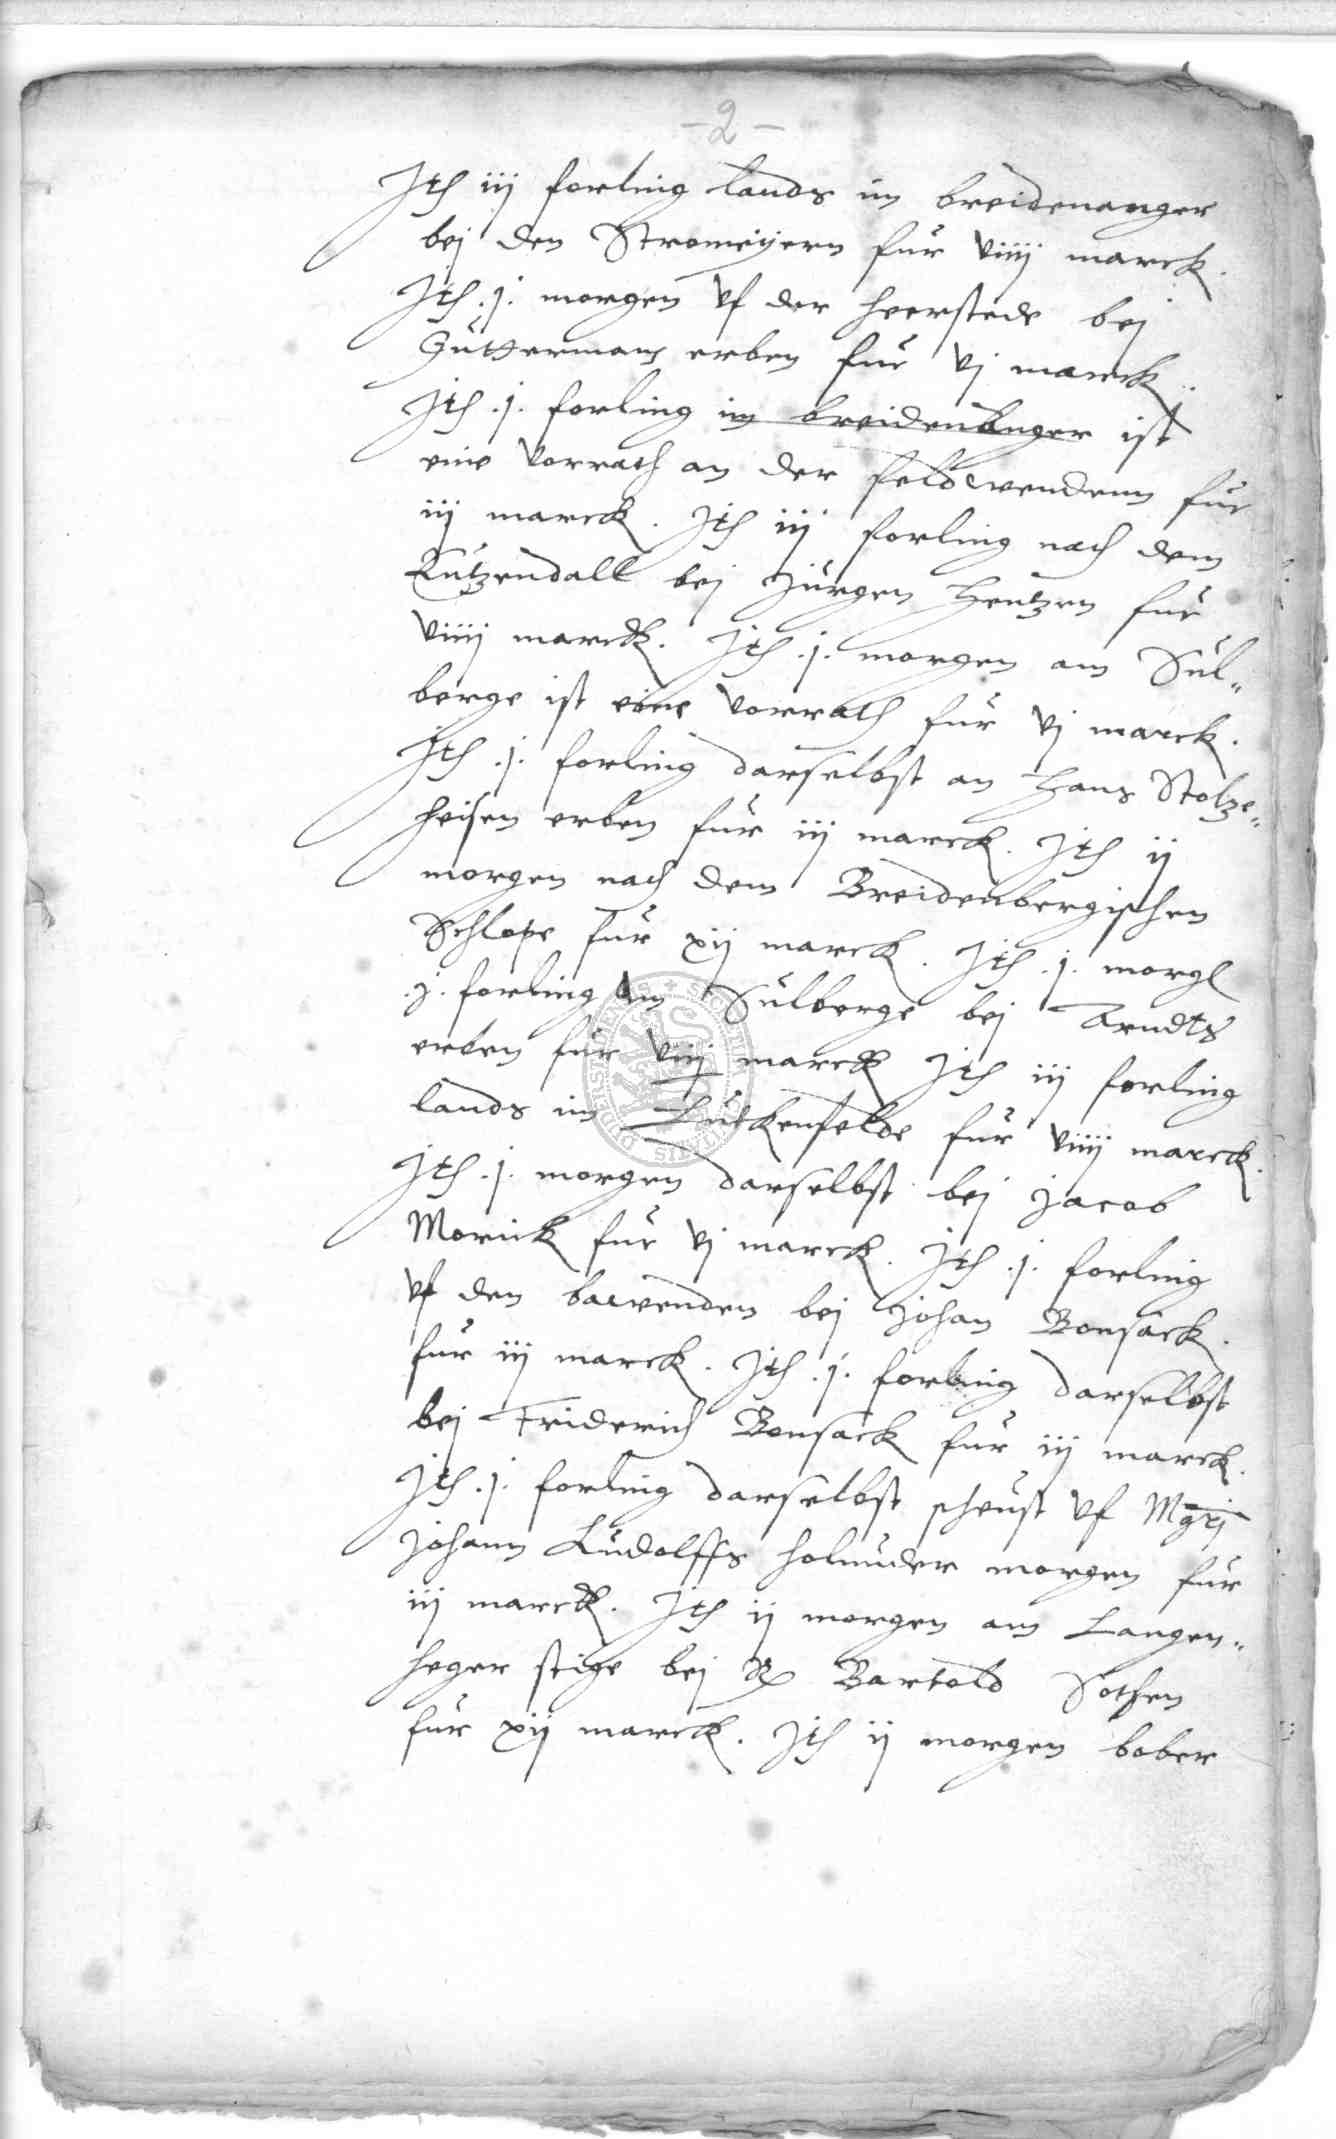 -2-
Jth iij forling lands im breidenanger
bej den Stromeijern fur viiij marck.
Jth .j. morgen vf der heerstede bej
Guttermans erben fur vj marck.
Jth .j. forling im breidenanger ist
eine vorrath an der feldwendenn fur
iij marck. Jth iij forling nach dem
Lutzendall bej Jurgen Hentzen fur
viiij marck. Jth .j. morgen am Sul„
berge ist eine vorrath fur vj marck.
Jth .j. forling darselbst an Hans Stolze„
heisen erben fur iij marck. Jth ij
morgen nach dem Breidenbergischen
Schlope fur xij marck. Jth .j. morgl
.j. forling am Sulberge bej Arndts
erben fur viiij marck Jth iij forling
lands im Lutkenfelde fur viiij marck.
Jth .j. morgen darselbst bej Jacob
Morick fur vj marck. Jth .j. forling
vf den bawenden bej Johan Bonsack.
fur iij marck. Jth .j. forling darselbst
bej Friderich Bonsack fur iij marck.
Jth .j. forling darselbst scheust vf Mgrj
Johann Ludolffs holunder morgen fur
iij marck. Jth ij morgen am Langen„
heger stige bej Bartold Sothen
fur xij marck. Jth ij morgen bober
SECRETUM CIVITATIS DUDERSTADENSIS